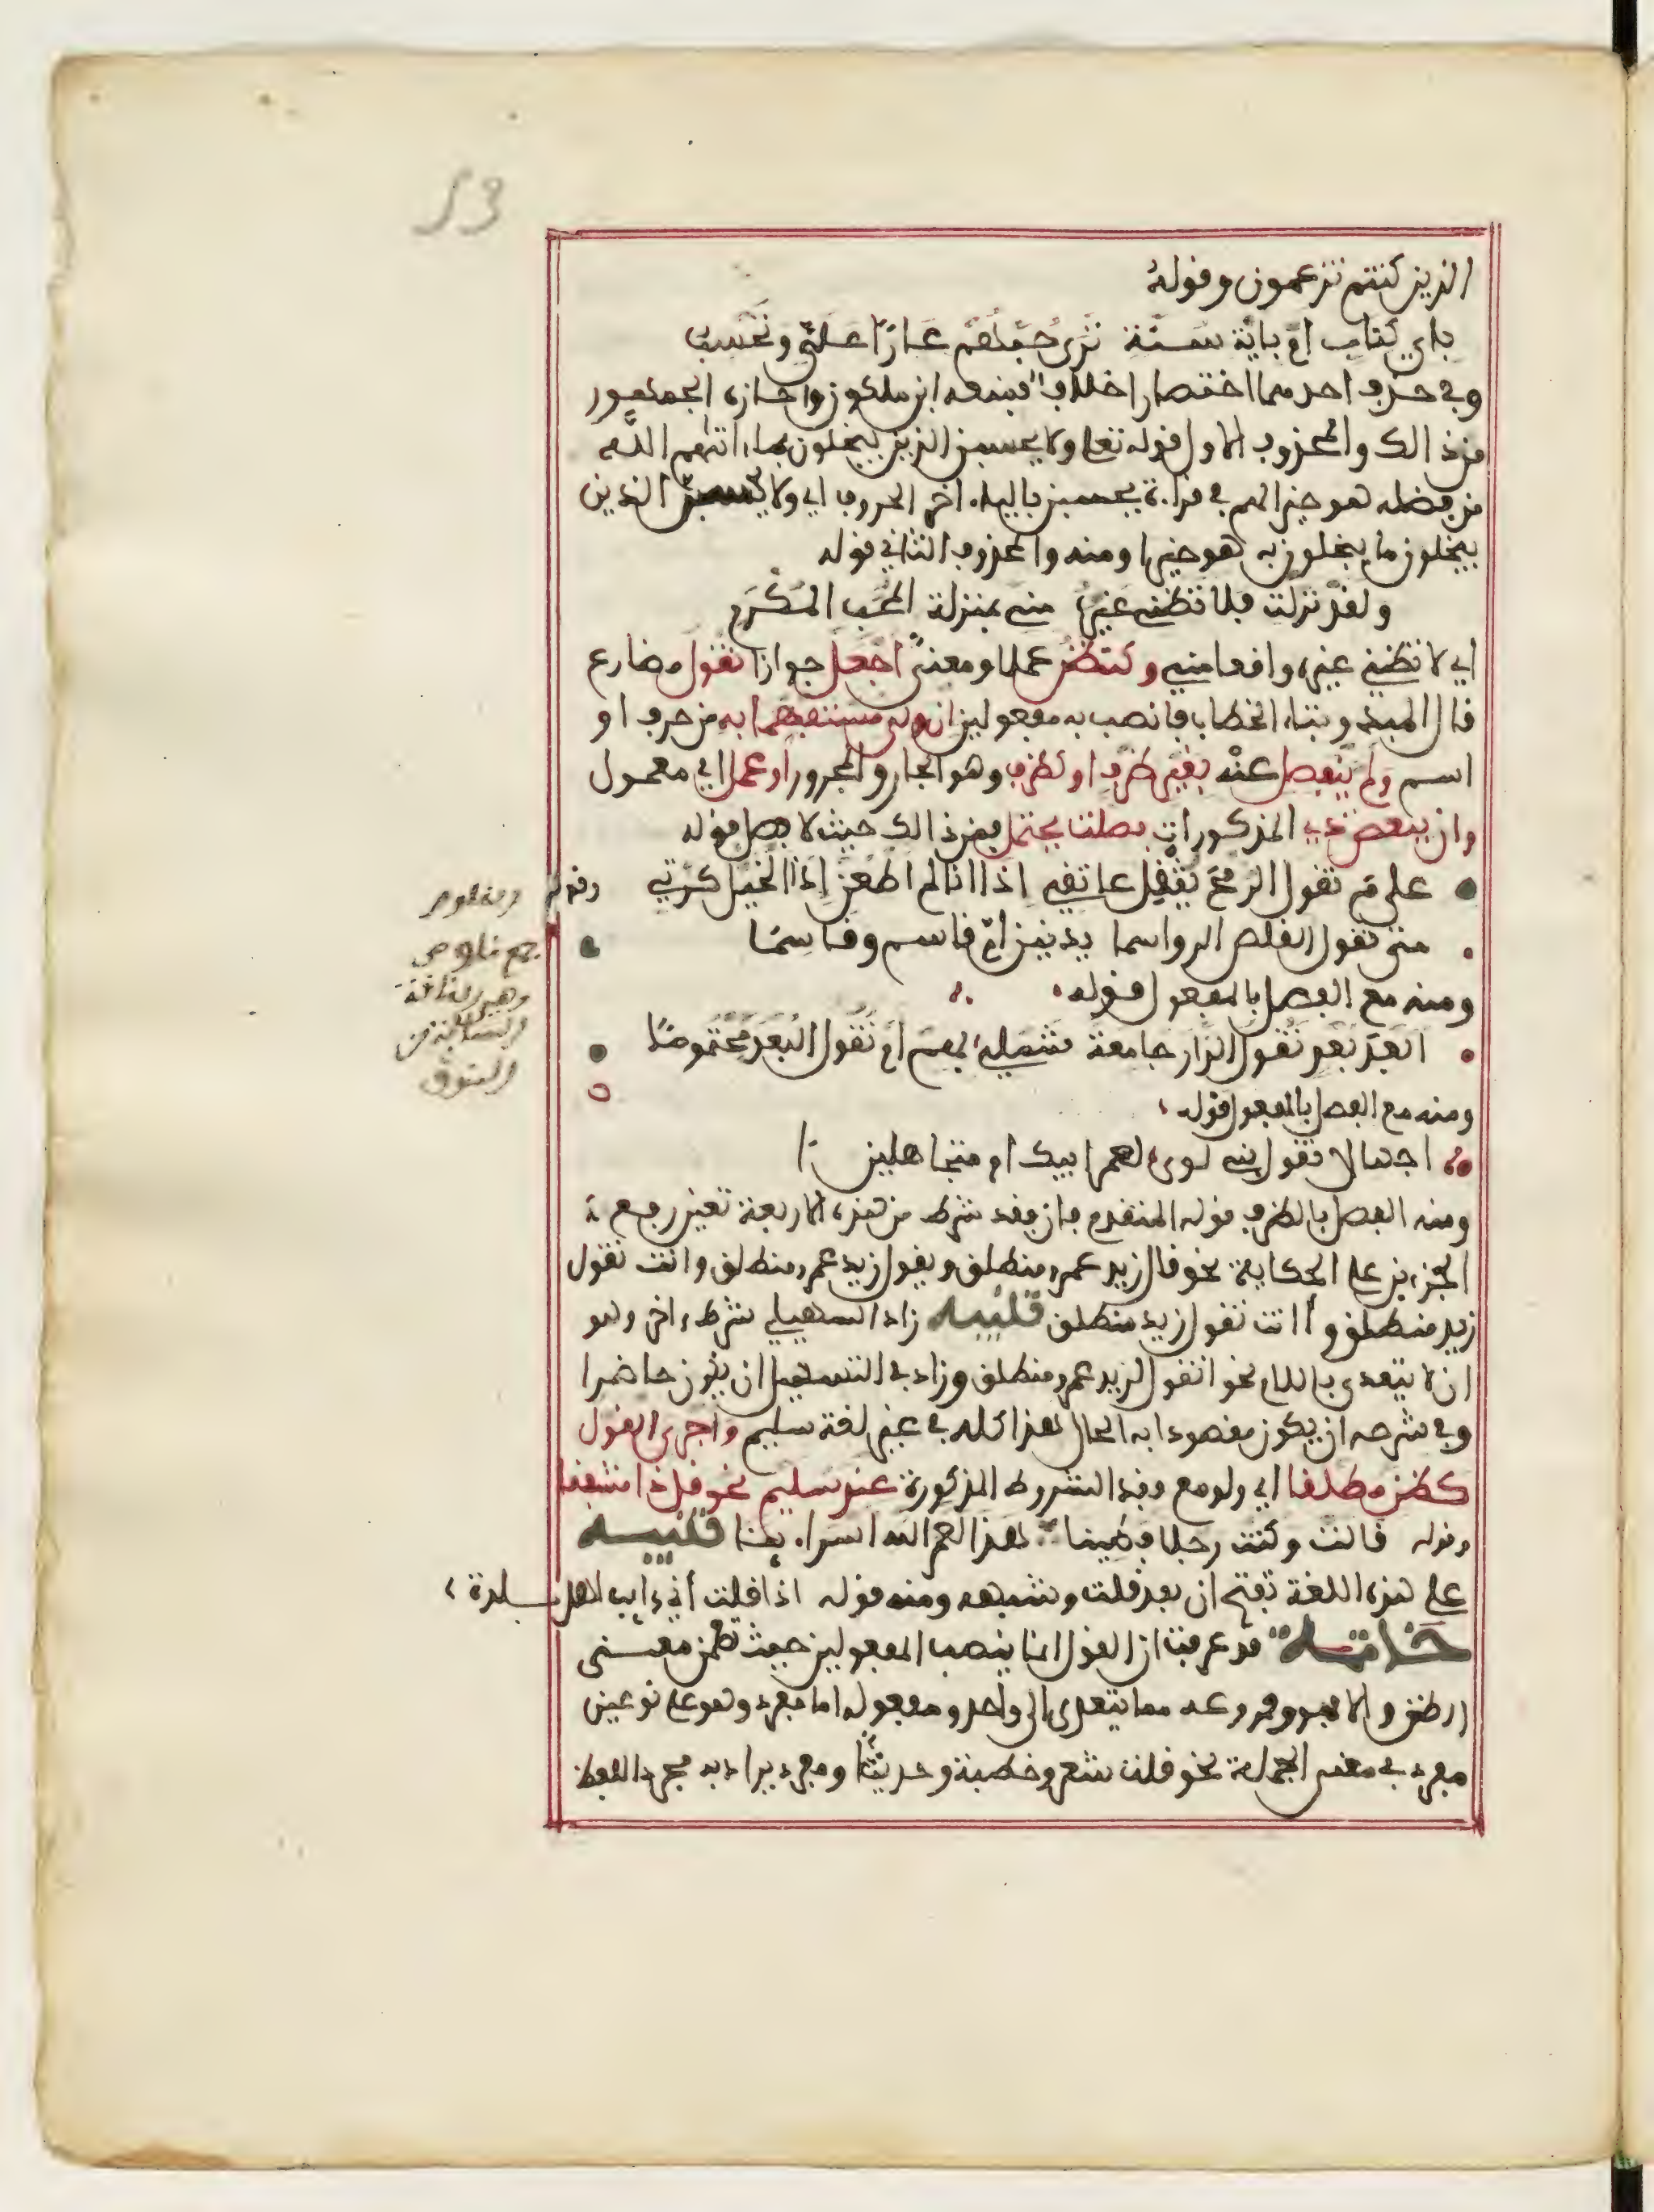 53
الذين كنتم تزعمون وقوله
باي كتاب ام باية سنة ترى حبهم عارا علي وتحسب
وفي حذف احدهما اختصارا خلاف فمنعه ابن ملكون واجازه الجمهور
فمن ذالك والمحذوف الاول قوله تعلى ولا يحسبن الذين يبخلون بما ءاتيهم الله
من فضله هو خيرا لهم في قراءة يحسبن بالياء اخر الحروف اي ولا يحسبن الذين
يبخلون ما يبخلون به هو خيرا ومنه والمحذوف الثاني قوله
ولقد نزلت فلا تظني غيره مني بمنزلة المحب المكرم
اي لا تظني غيره واقعا مني وكتظن عملا ومعنى اجعل جوازا تقول مضارع
قال المبدو بتاء الخطاب فانصب به مفعولين ان ولي مستفهما به من حرف او
اسم ولم ينفصل عنه بغير ظرف او كظرف وهو الجار والمجرور او عمل اي معمول
وان ببعض ذي المذكورات فصلت يحتمل فمن ذالك حيث لا فصل قوله
علام تقول الرمح يثقل عاتقي اذا انا لم اطعن اذا الخيل كرت وقوله
متى تقول القلص الرواسما يدنين ام قاسم وقاسما
ومنه مع الفصل بالمفعول قوله
ابعد بعد تقول الدار جامعة شملي بهم ام تقول البعد محتوما
ومنه مع الفصل بالمفعول قوله
اجهالا تقول بني لوى لعمر ابيك ام متجاهلين
ومنه الفصل بالظرف قوله المتقدم فان فقد شرط من هذه الاربعة تعين رفع
الجزءين على الحكاية نحو قال زيد عمرو منطلق ويقول زيد عمرو منطلق وانت تقول
زيد منطلق و اانت تقول زيد منطلق تنبيه زاد السهيلي شرطا ءاخر وهو
ان لا يتعدى باللام نحو اتقول لزيد عمرو منطلق وزاد في التسهيل ان يكون حاضرا
وفي شرحه ان يكون مقصودا به الحال هذا كله في غير لغة سليم واجرى القول
كظن مطلقا اي ولو مع فقد الشروط المذكورة عند سليم نحو قل ذا مشفقا
وقوله قالت وكنت رجلا فطينا هذا لعمر الله اسراءينا تنبيه
على هذه اللغة تفتح ان بعد قلت وشبهه ومنه قوله اذا قلت اني ءايب اهل بلدة
خاتمة قد عرفت ان القول انما ينصب المفعولين حيث تضمن معنى
الظن والا فهو وفروعه مما يتعدى الى واحد ومفعوله اما مفرد وهو على نوعين
مفرد في معنى الجملة نحو قلت شعرا وخطبة وحديثا ومفرد يراد به مجرد اللفظ
والقلوص
جمع قلوص
وهي الناقة
الشابة من
النوق